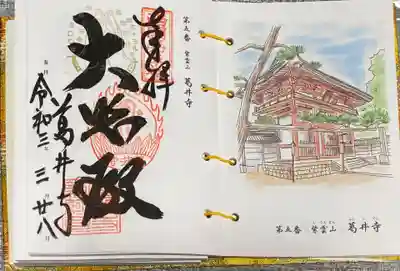 第五番 紫雲山 葛井寺
奉拝
大悲殿
葛井寺
令和三 三 廿八
第五番 紫雲山 葛井寺